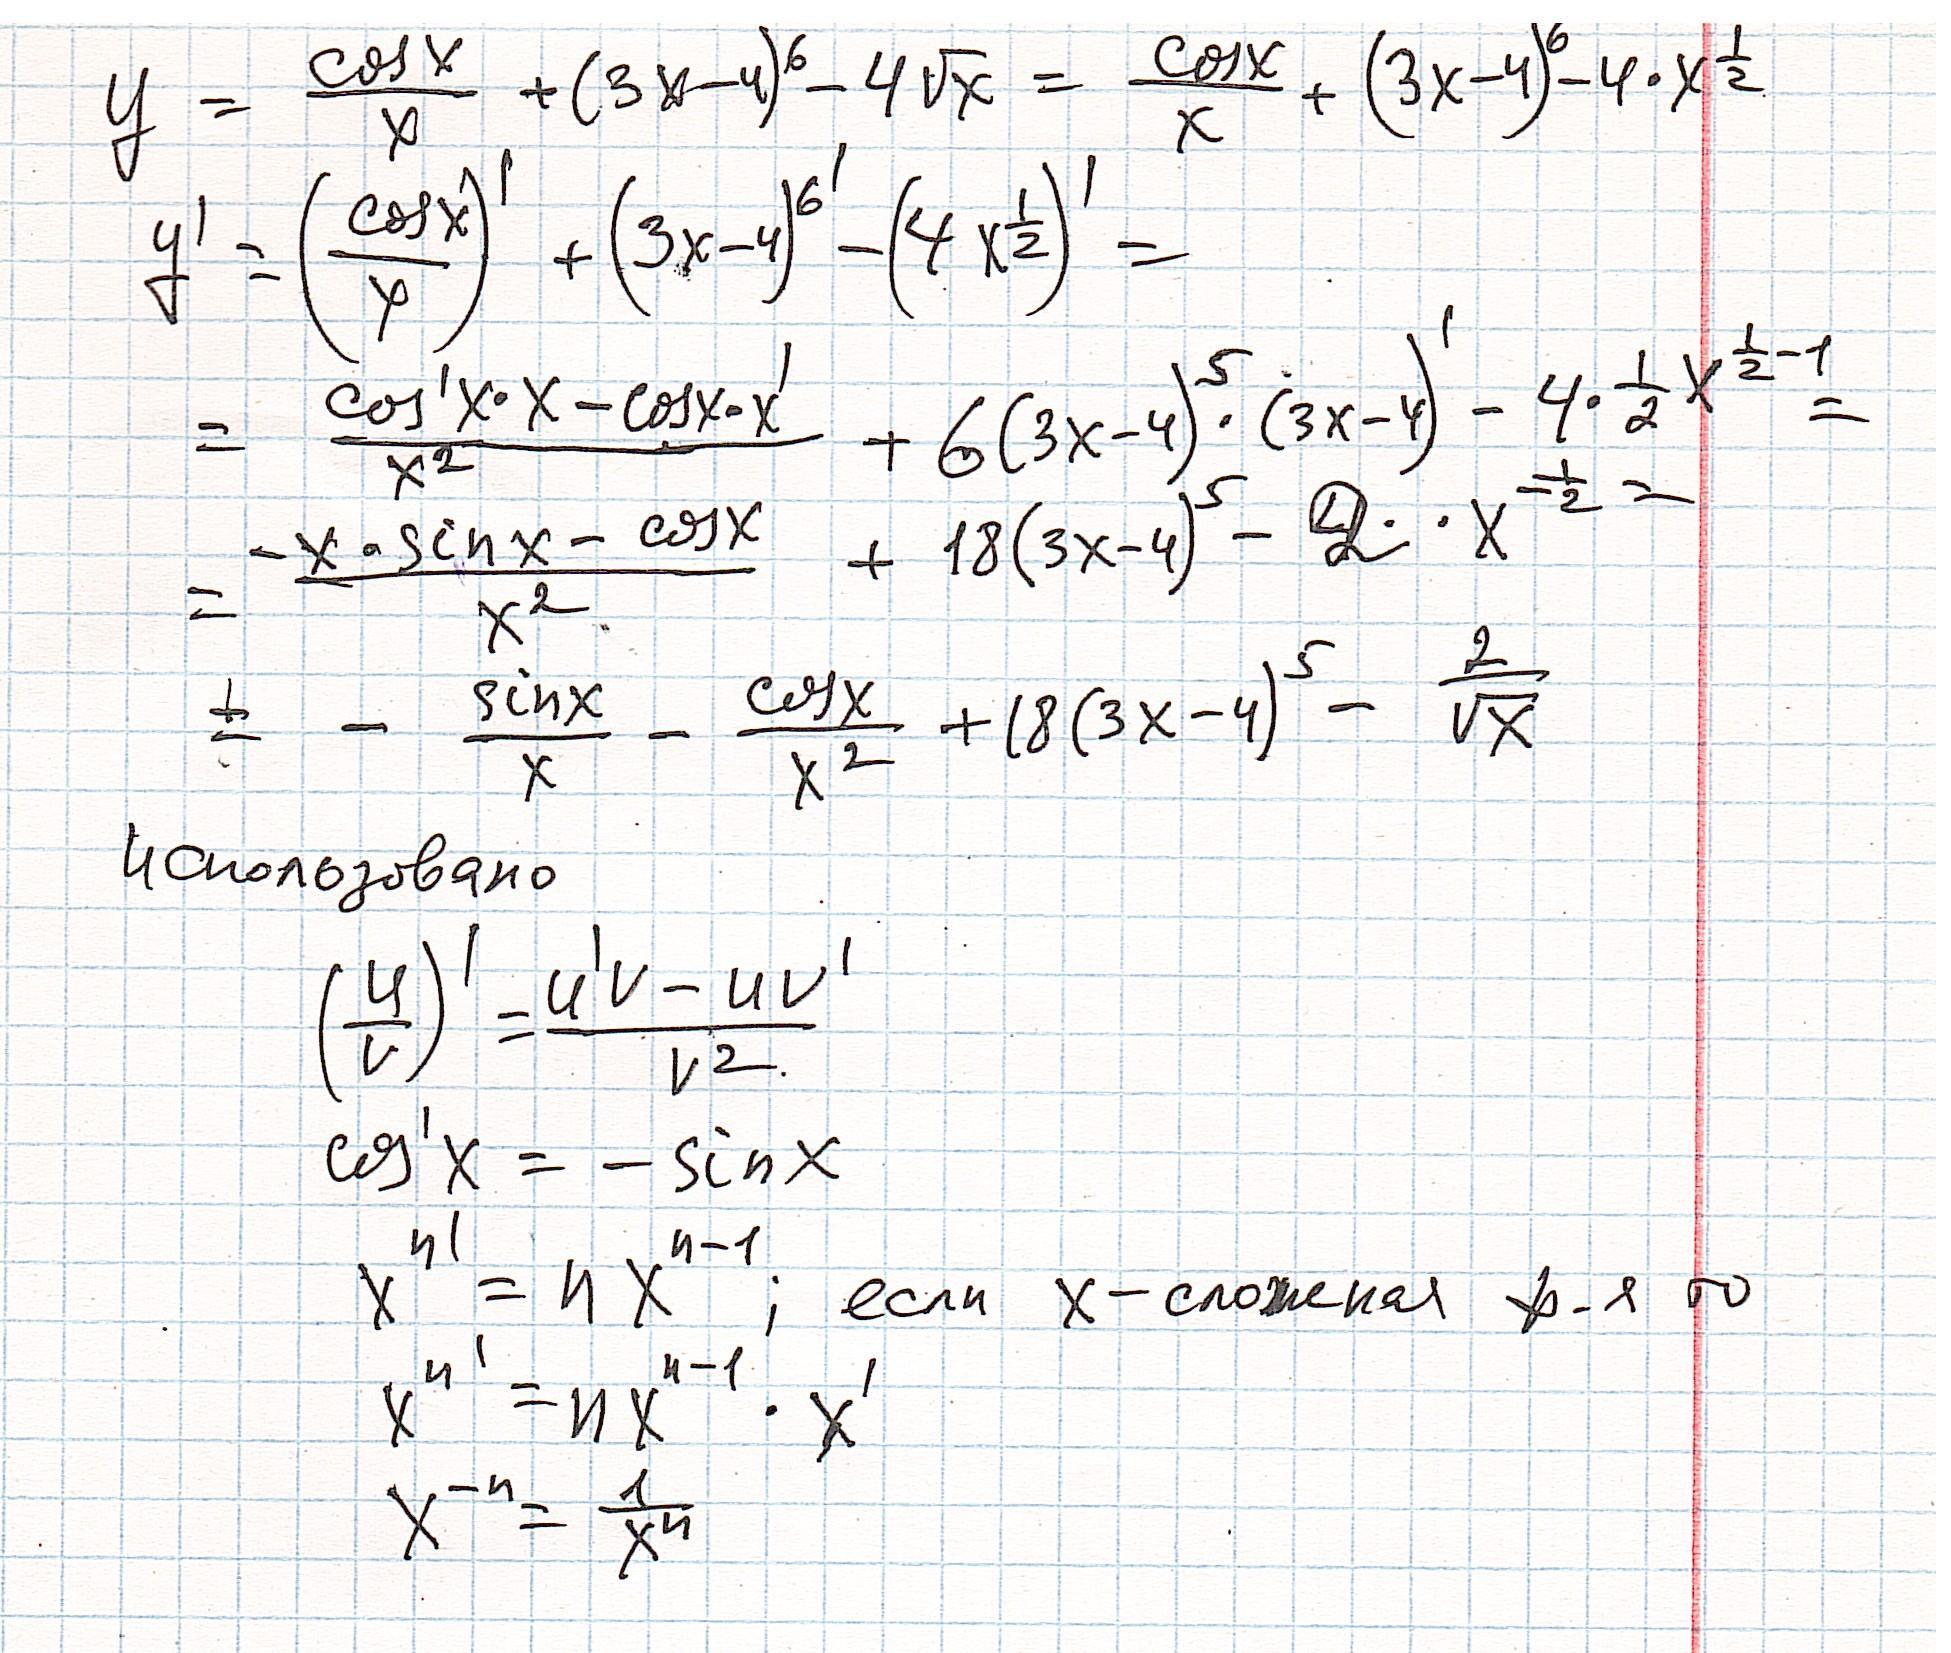 y = cosx/x + (3x-4)^6 - 4√x = cosx/x + (3x-4)^6 - 4·x^(1/2)
y' = (cosx/x)' + (3x-4)^6' - (4x^(1/2))' =
= (cos'x·x - cosx·x')/x^2 + 6(3x-4)^5·(3x-4)' - 4·1/2 x^(1/2-1) =
= (-x·sinx - cosx)/x^2 + 18(3x-4)^5 - 2··x^(-1/2) =
= - sinx/x - cosx/x^2 + 18(3x-4)^5 - 2/√x
использовано
(u/v)' = (u'v - uv')/v^2
cos'x = -sinx
x^n' = nx^(n-1); если x-сложная ф-я то
x^n' = nx^(n-1)·x'
x^(-n) = 1/x^n